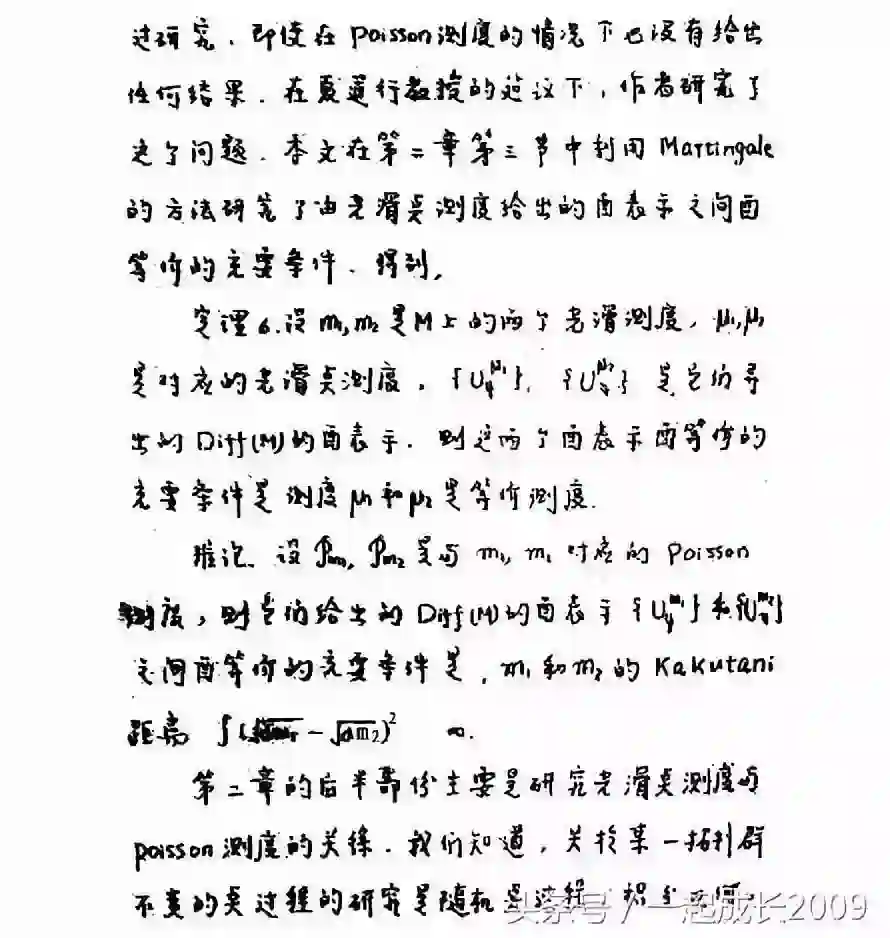 过研究,即使在Poisson测度的情况下也没有给出
任何结果.在夏道行教授的建议下,作者研究了
这个问题.本文在第二章第三节中利用Martingale
的方法研究了由光滑点测度给出的酉表示之间酉
等价的充要条件.得到,
定理6.设m₁,m₂是M上的两个光滑测度,μ₁,μ₂
是对应的光滑点测度,{U_ψ^μ₁},{U_ψ^μ₂}是它们导
出的Diff(M)的酉表示.则这两个酉表示酉等价的
充要条件是测度μ₁和μ₂是等价测度.
推论.设Pm₁,Pm₂是与m₁,m₂对应的Poisson
测度,则它们给出的Diff(M)的酉表示{U_ψ^m₁}和{U_ψ^m₂}
之间酉等价的充要条件是,m₁和m₂的Kakutani
距离 ∫( - √dm₂)² ∞.
第二章的后半部份主要是研究光滑点测度与
Poisson测度的关系.我们知道,关于某一拓扑群
不变的点过程的研究是随机点过程、积分几何、
头条号/一起成长2009